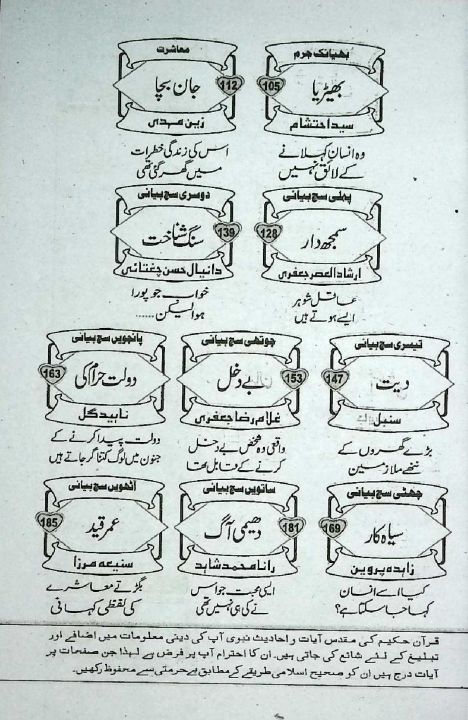 بھیانک جرم
بھیڑیا
105
سید احتشام
وہ انسان کہلانے
کے لائق نہیں
معاشرت
جان بچا
112
زین مہدی
اس کی زندگی خطرات
میں گھر گئی تھی
پہلی سچ بیانی
سمجھ دار
128
ارشاد العصر جعفری
عاقل شوہر
ایسے ہوتے ہیں
دوسری سچ بیانی
سنگ شناخت
139
دانیال حسن چغتائی
خواب جو پورا
ہوا لیکن......
تیسری سچ بیانی
دیت
147
سنبل
بڑے گھروں کے
ننھے ملازمین
چوتھی سچ بیانی
بے دخل
153
غلام رضا جعفری
واقعی وہ شخص بے دخل
کرنے کے قابل تھا
پانچویں سچ بیانی
دولت حرام کی
163
ناہید گل
دولت پیدا کرنے کے
جنون میں لوگ کتنا گر جاتے ہیں
چھٹی سچ بیانی
سیاہ کار
169
زاہدہ پروین
کیا اسے انسان
کہا جا سکتا ہے؟
ساتویں سچ بیانی
دھیمی آگ
181
رانا محمد شاہد
ایسی محبت جو اس
نے کی ہی نہیں تھی
آٹھویں سچ بیانی
عمر قید
185
سنیعہ مرزا
بگڑتے معاشرے
کی لفظی کہانی
قرآن حکیم کی مقدس آیات و احادیث نبوی آپ کی دینی معلومات میں اضافے اور
تبلیغ کے لئے شائع کی جاتی ہیں۔ ان کا احترام آپ پر فرض ہے لہٰذا جن صفحات پر
آیات درج ہیں ان کو صحیح اسلامی طریقے کے مطابق بے حرمتی سے محفوظ رکھیں۔